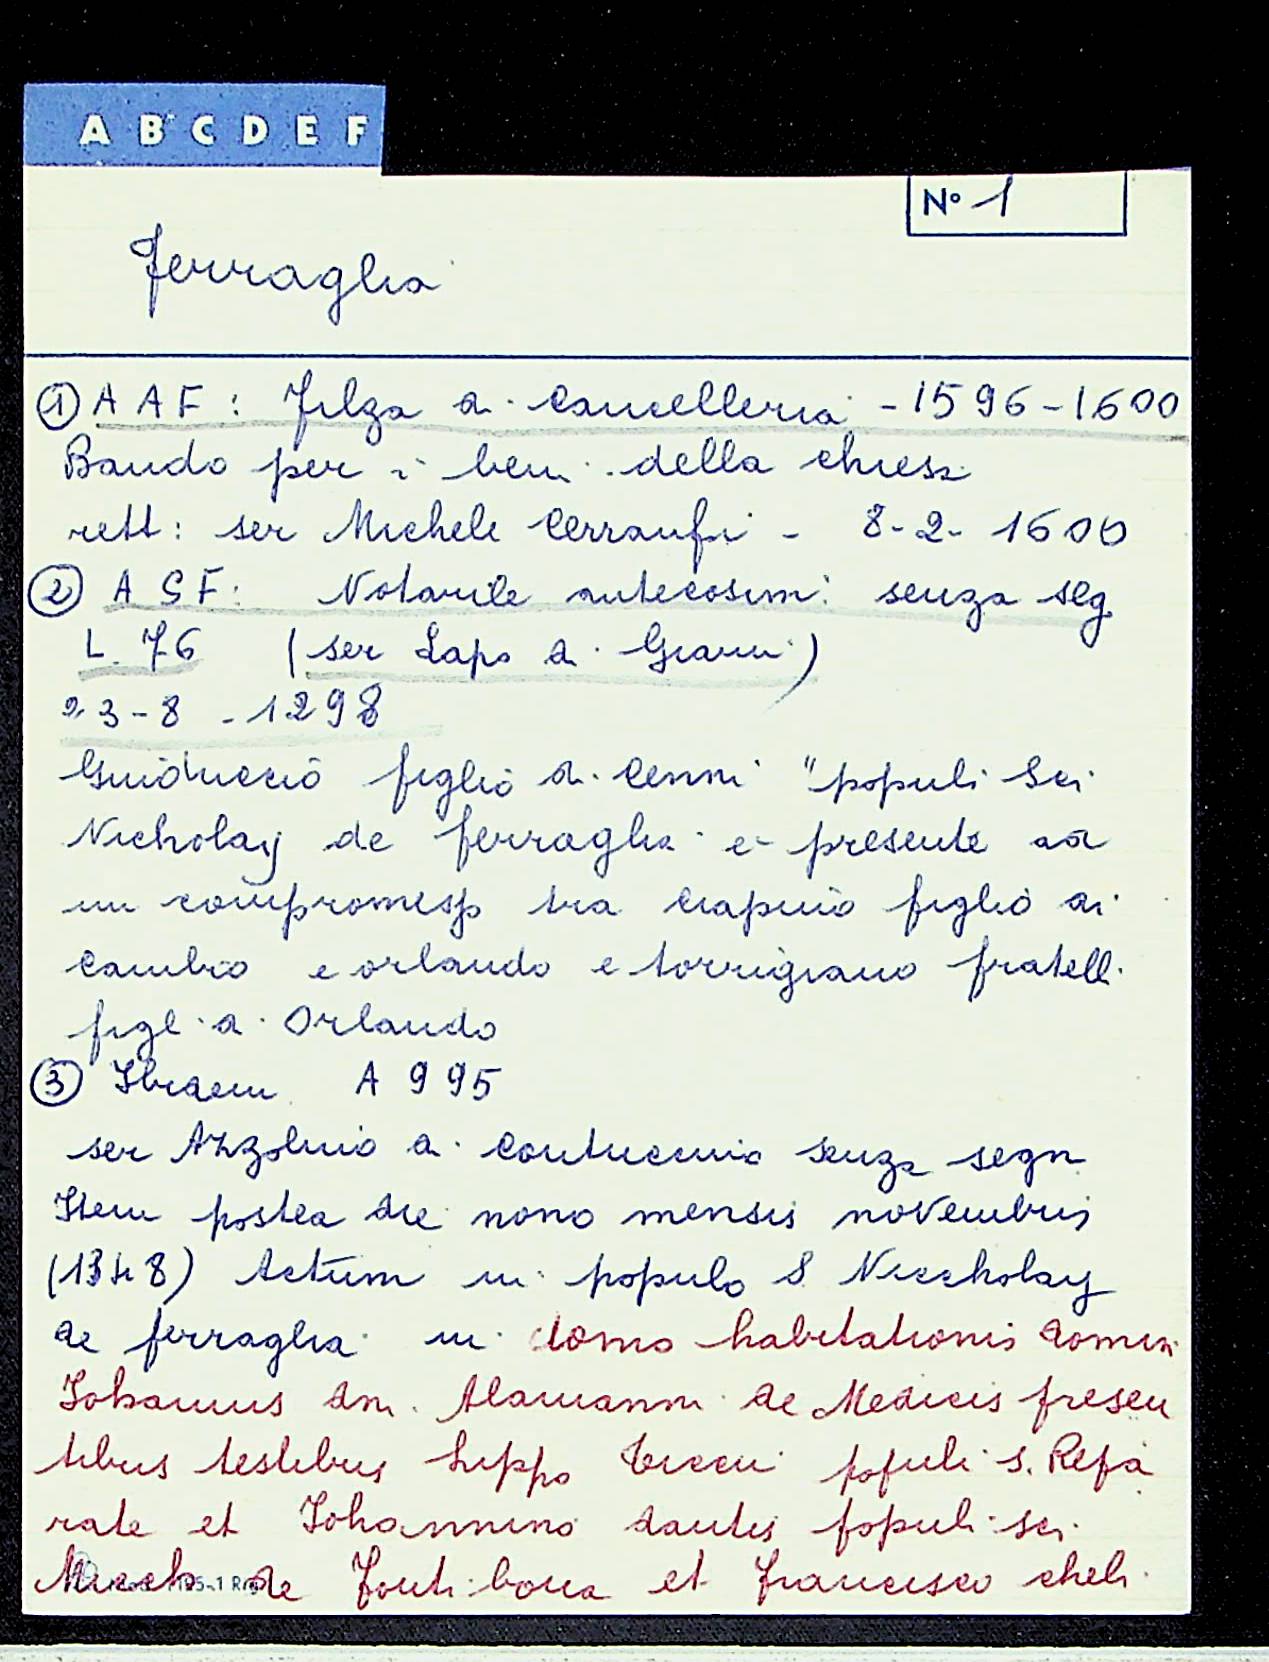 A B C D E F
Nº 1
Ferraglia
① A A F : Filza di Cancelleria - 1596-1600
Bando per i beni della chiesa
rett: ser Michele Cerraufi - 8-2-1600
② A S F: Notarile antecosim: senza seg
L. 76 (ser Lapo di Gianni)
23-8-1298
Guiduccio figlio di Cenni "populi Sci
Nicholay de ferraglia e presente ad
un compromesso tra Ciapino figlio di
Cambio e orlando e torrigiano fratelli
figli di Orlando
③ Ibidem A 995
ser Azzolino di Contuccino senza segn
Item postea die nono mensis novembris
(1348) Actum in populo S. Niccholay
de ferraglia in domo habitationis domini
Johannis dni. Alamanni de Medicis presen
tibus testibus Lippo populi s. Repa
rate et Johannino dantis populi sci
Mich de Fonti bona et Francisco cheli